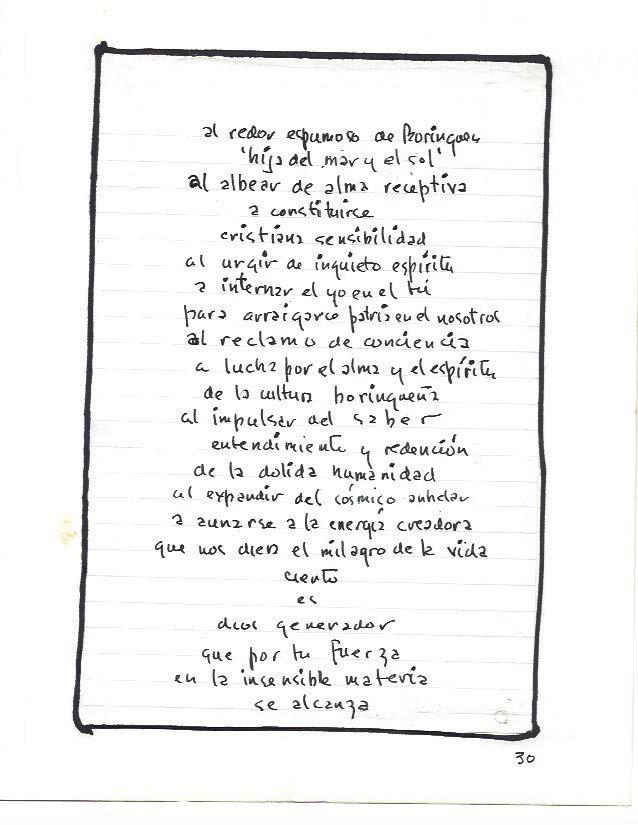 al redor espumoso de Borinquen
'hija del mar y el sol'
al albear de alma receptiva
a constituirse
cristiana sensibilidad
al urgir de inquieto espíritu
a internar el yo en el tú
para arraigarse patria en el nosotros
al reclamo de conciencia
a lucha por el alma y el espíritu
de la cultura borinqueña
al impulsar del saber
entendimiento y redención
de la dolida humanidad
al expandir del cósmico anhelar
a aunarse a la energía creadora
que nos diera el milagro de la vida
es
dios generador
que por tu fuerza
en la insensible materia
se alcanza
30